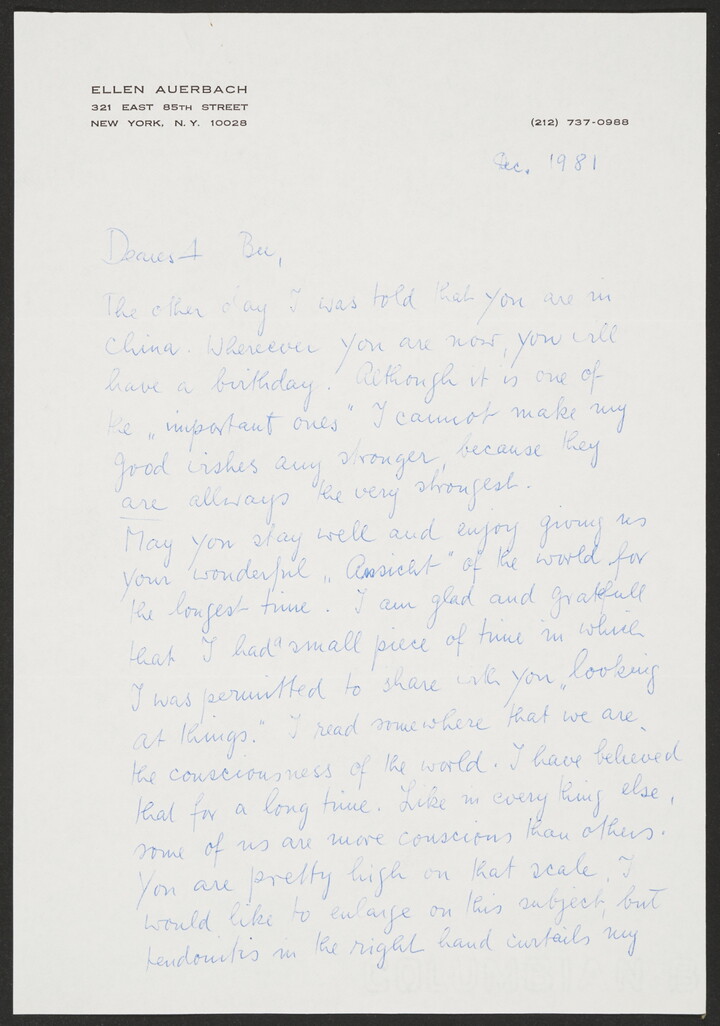 ELLEN AUERBACH
321 EAST 85TH STREET
NEW YORK, N.Y. 10028
(212) 737-0988
Dec. 1981
Dearest Bee,
The other day I was told that you are in
China. Wherever you are now, you will
have a birthday. Although it is one of
the „important ones" I cannot make my
good wishes any stronger, because they
are allways the very strongest.
May you stay well and enjoy giving us
your wonderful „Ansicht" of the world for
the longest time. I am glad and gratefull
that I had a small piece of time in which
I was permitted to share with you „looking
at things." I read somewhere that we are
the consciousness of the world. I have believed
that for a long time. Like in everything else,
some of us are more conscious than others.
You are pretty high on that scale. I
would like to enlarge on this subject, but
tendonitis in the right hand curtails my